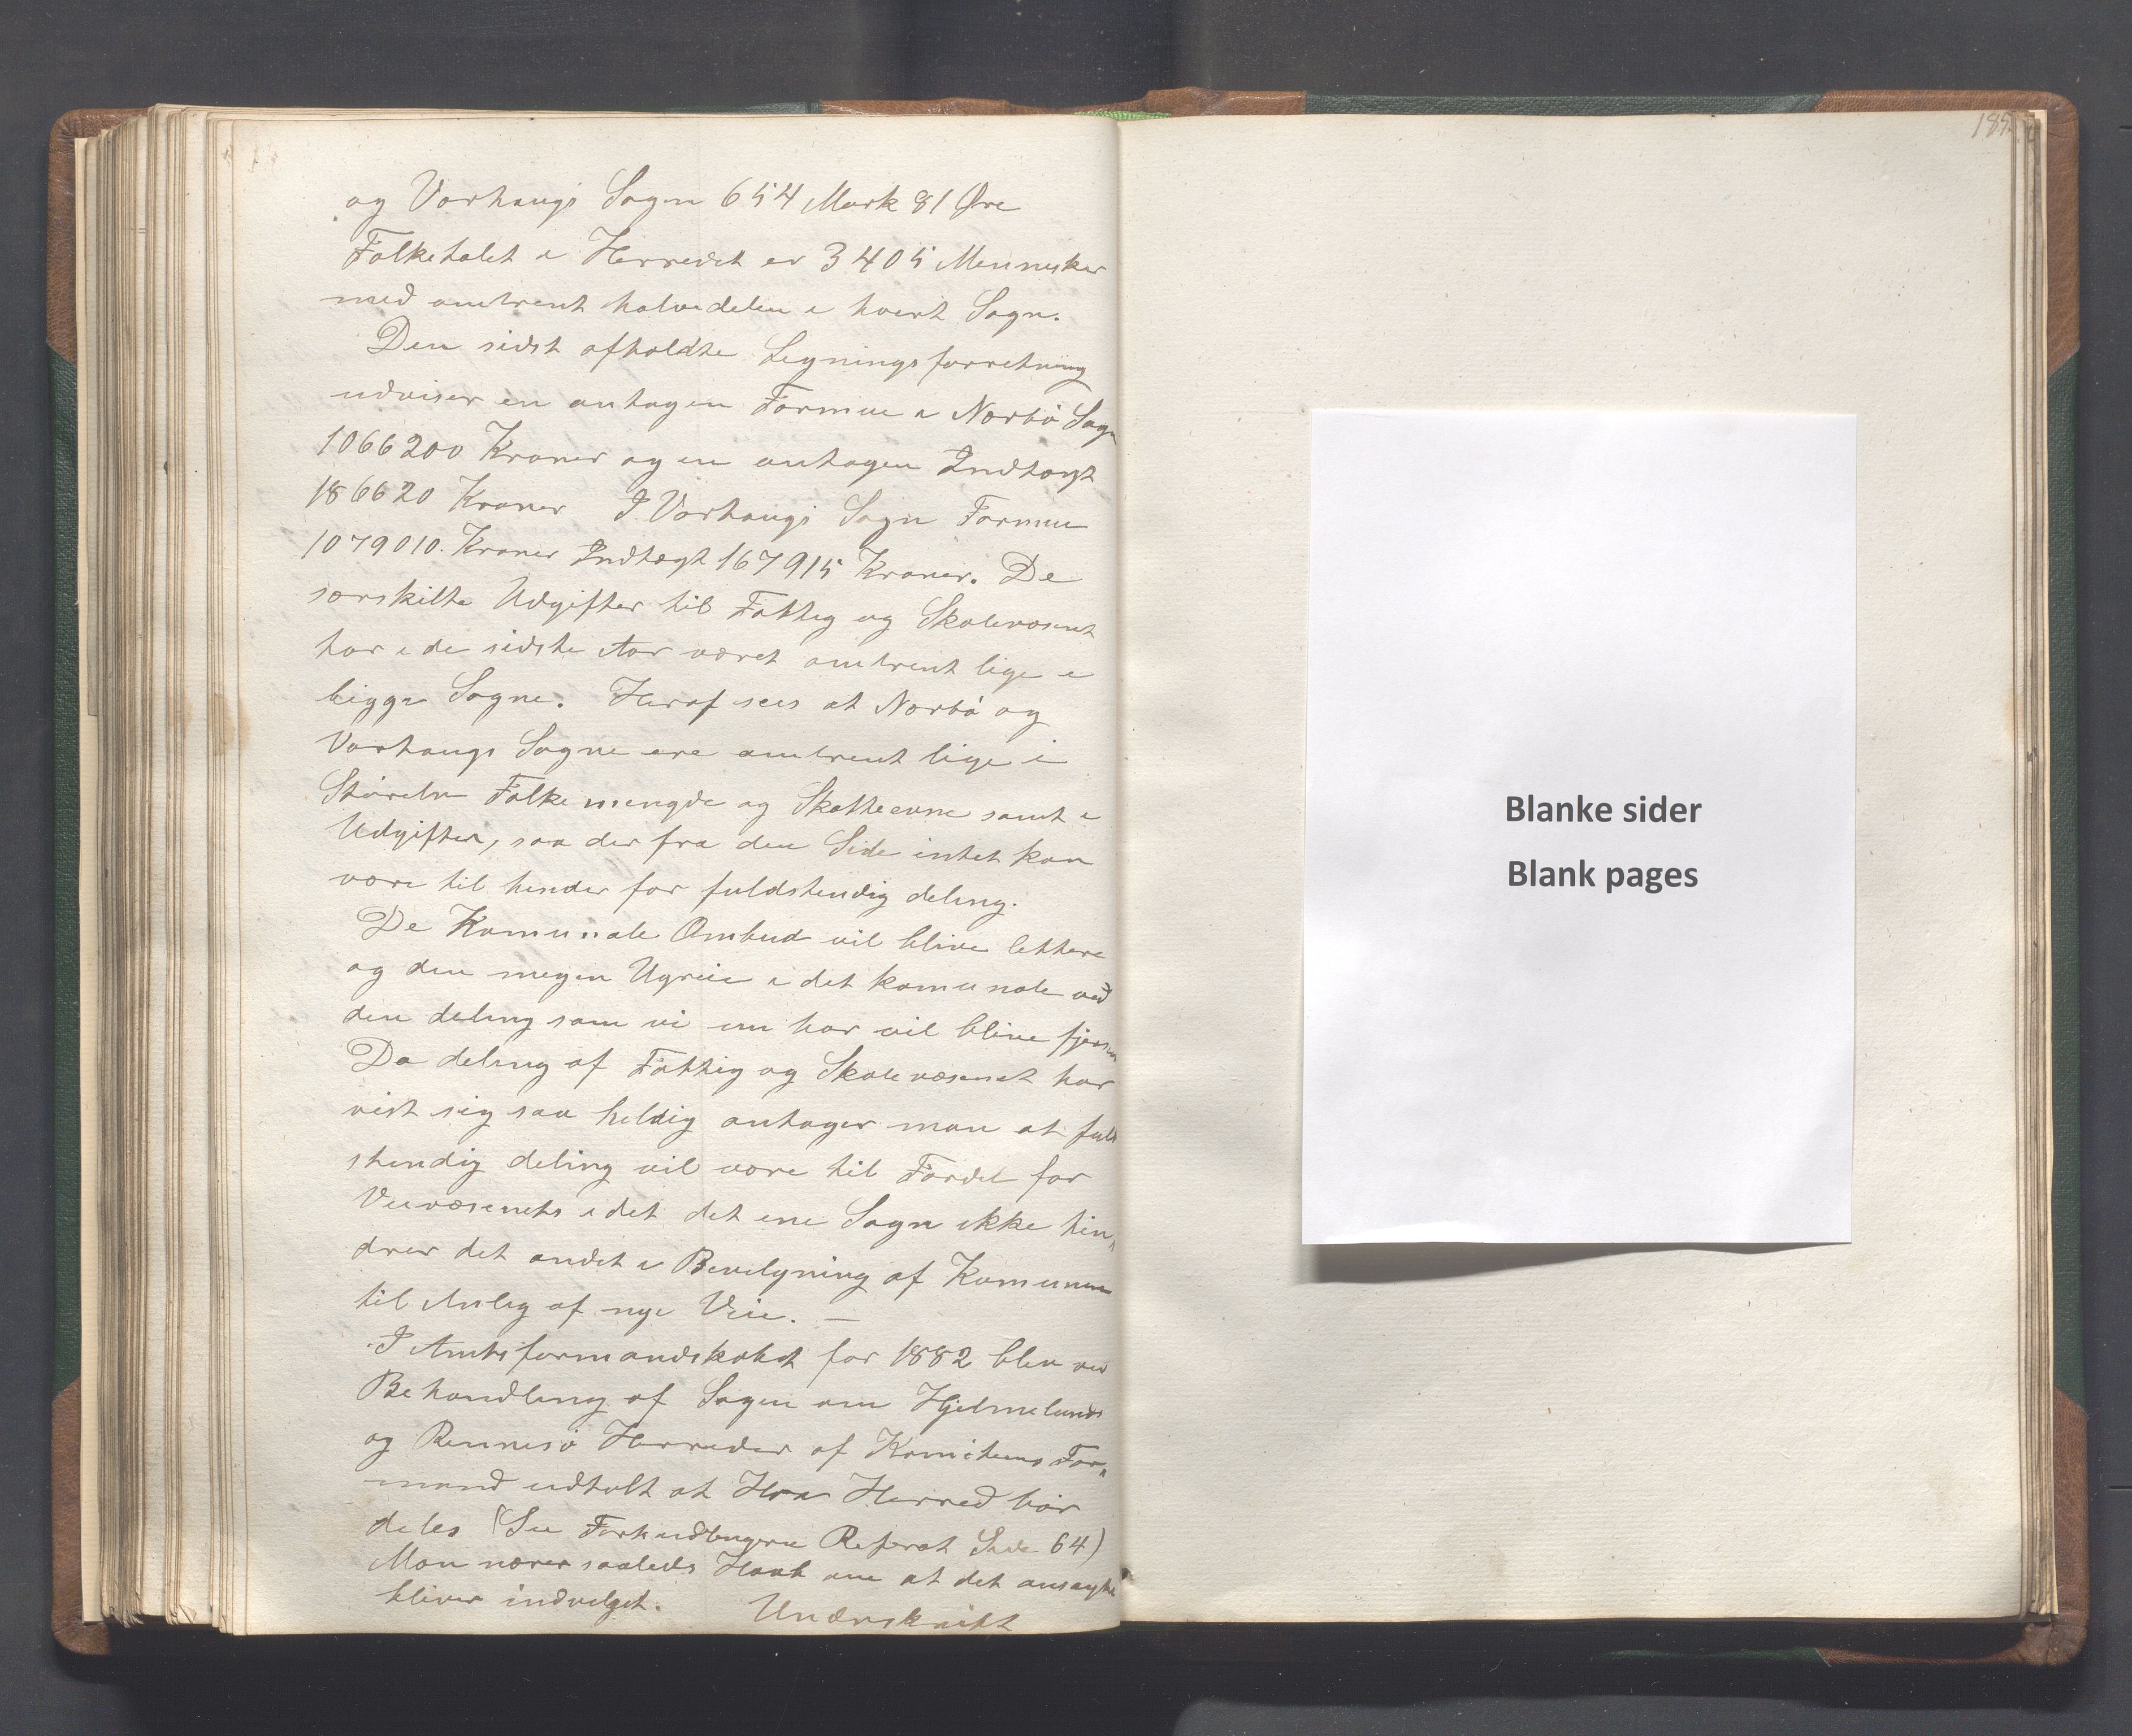 og Varhaugs Sogn 654 Mark 81 Øre
Folketalet i Herredet er 3405 Mennesker
med omtrent halvedelen i hvert Sogn.
Den sidst afholdte Ligningsforretning
udviser en antagen Formue i Nærbø Sogn
1066200 Kroner og en antagen Indtægt
186620 Kroner I Varhaugs Sogn Formue
1079010. Kroner Indtægt 167915 Kroner. De
særskilte Udgifter til Fattig og Skolevæsenet
har i de sidste Aar været omtrent lige i
begge Sogne. Heraf sees at Nærbø og
Varhaugs Sogne ere omtrent lige i
Størelse Folkemengde og Skatteevne samt i
Udgifter, saa der fra den Side intet kan
være til hinder for fuldstendig deling.
De Komunale Ombud vil blive lettere
og den megen Ugreie i det komunale ved
den deling som vi nu har vil blive fjernet
Da deling af Fattig og Skolevæsenet har
vist sig saa heldig antager man at fuld
stendig deling vil være til Fordel for
Veivæsenets idet det ene Sogn ikke hin„
drer det andet i Bevilgning af Komunen
til Anleg af nye Veie. —
I Amtsformandskabet for 1882 blev ved
Behandling af Sagen om Hjelmelands
og Rennesø Herreder af Komiteens For„
mand udtalt at Haa Herred bør
deles (See Forhandlingerne Referat Side 64)
Man nærer saaledes Haab om at det ansøgte
bliver indvilget. Underskrift
185
Blanke sider
Blank pages